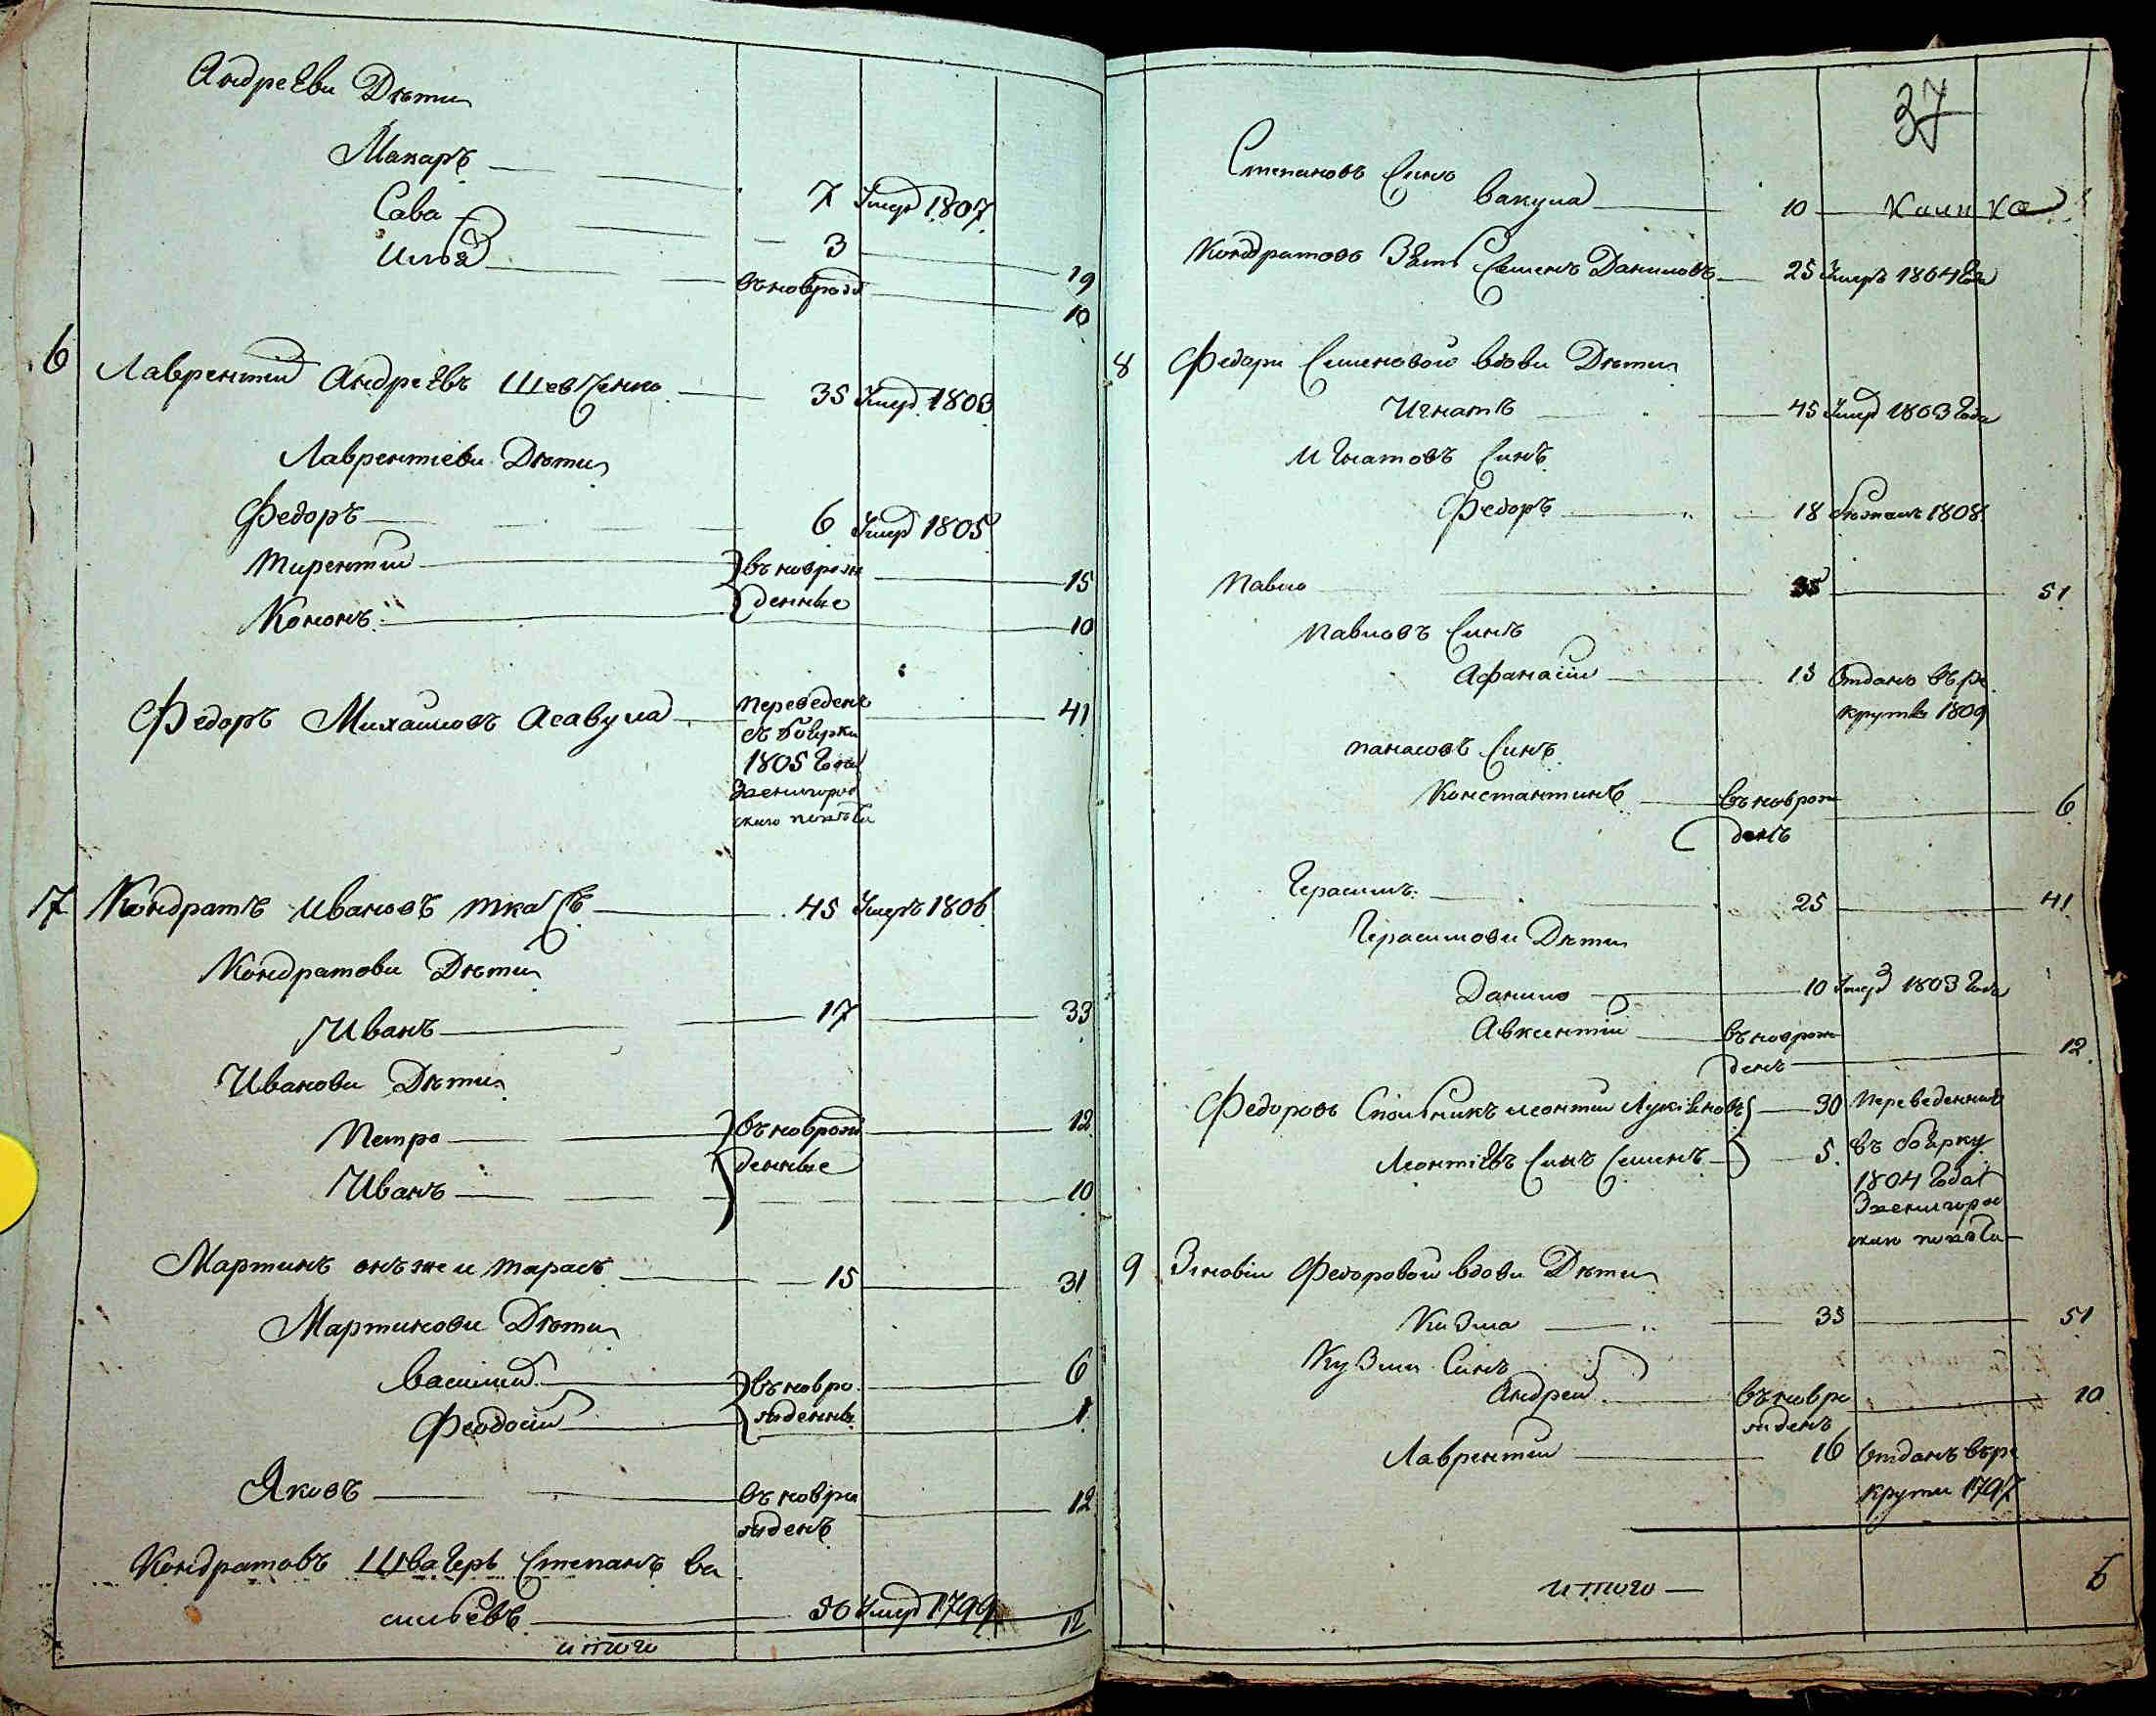 Андреѣви Дѣти
Макаръ 7 Умер 1807
Сава 3 19
Илья вновь рожд 10
6 Лаврентій Андреѣвъ Шевченко 35 Умер 1803
Лаврентіеви Дѣти
Федоръ 6 Умер 1805
Тирентій въноврож 15
Кононъ денные 10
Федоръ Михайловъ Асавула переведенъ 41
съ боярки
1805 года
Звенигород
скаго повѣта
7 Кондратъ Ивановъ ткачъ 45 Умеръ 1806
Кондратови Дѣти
Иванъ 17 33
Иванови Дѣти
Петро въноврож 12
Иванъ денные 10
Мартинъ онъ же и тарасъ 15 31
Мартинови Дѣти
Василий въновро 6
Феодосій жденны 1
Яковъ въновро 12
жденъ
Кондратовъ Швагеръ Степанъ Ва
сильѣвъ 30 Умер 1799
итого 12
37
Степановъ Синъ
Вакула 10
Кондратовъ Зять Семенъ Даниловъ 25 Умеръ 1804 года
8 Федори Семеновой вдови Дѣти
Игнатъ 45 Умер 1803 Года
Игнатовъ Синъ
Федоръ 18 бѣжалъ 1808
Павло 35 51
Павловъ Синъ
Афанасій 13 Отданъ въ ре
круты 1809
Панасовъ Синъ
Константинъ въноврож 6
денъ
Герасимъ 25 41
Герасимови Дѣти
Данило 10 Умер 1803 Года
Авксентій въноврож 12
денъ
Федоровъ Спольникъ Леонтій Лукіяновъ 30 Переведенные
Леонтіѣвъ Синъ Семенъ 5 въ боярку
1804 года
Звенигород
скаго повѣта
9 Зиновіи Федоровой вдови Дѣти
Кизма 35 51
Кузми Синъ
Андрей въновро 10
жденъ
Лаврентій 16 Отданъ въ ре
крути 1797
итого 6